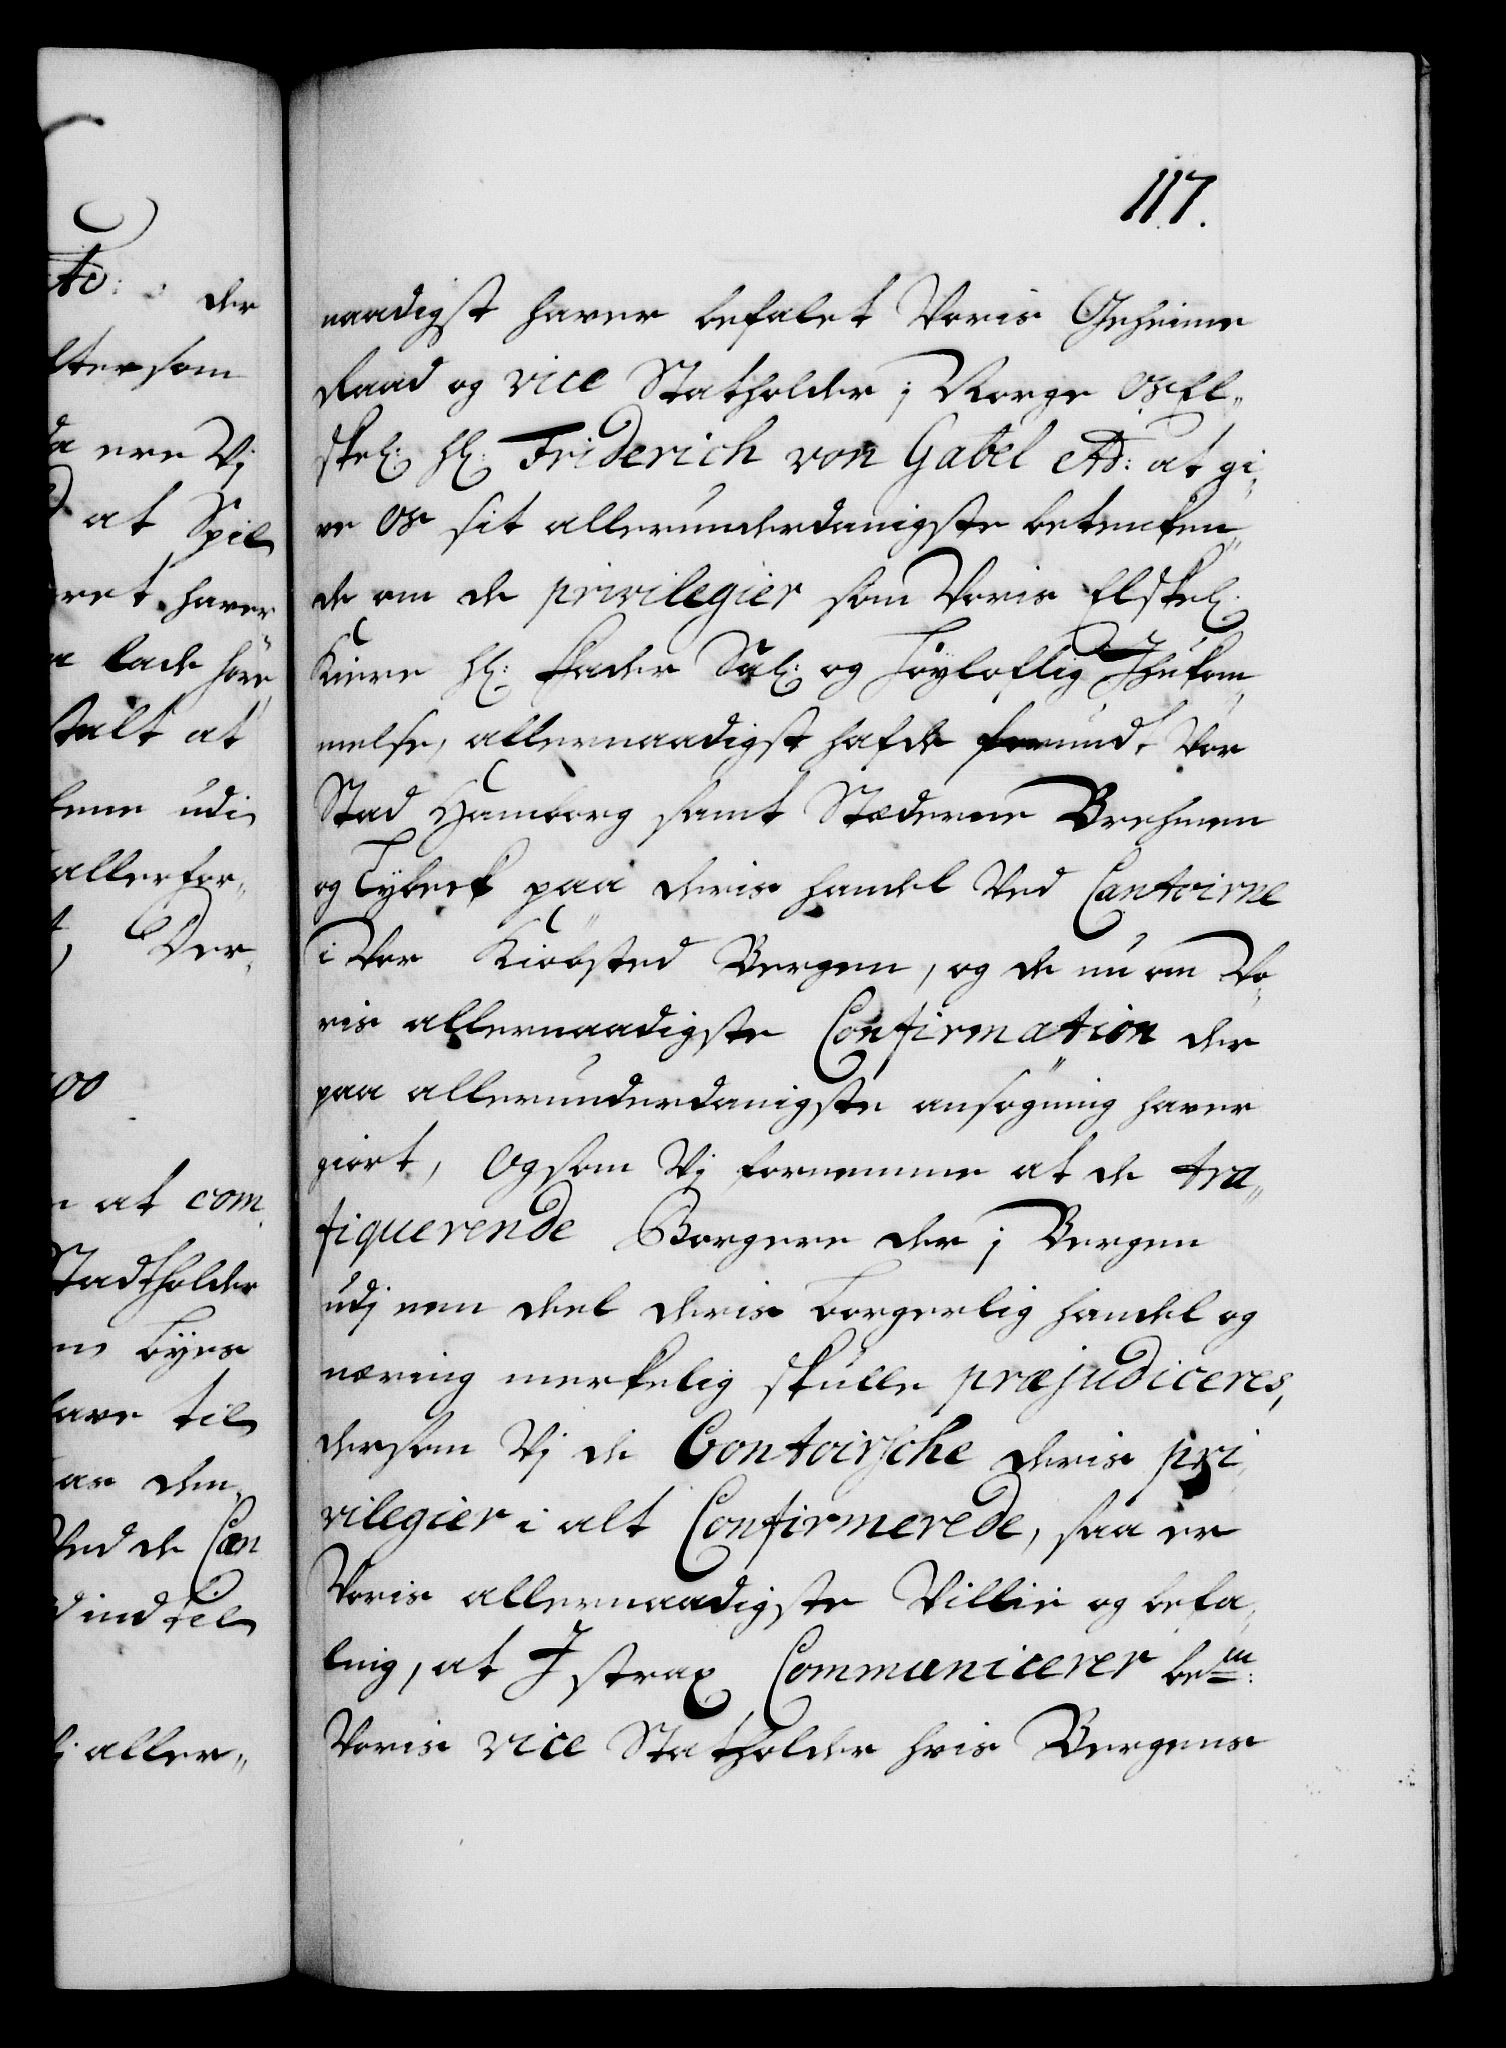 117.
naadigst haver befalet Voris Geheime
Raad og vice Statholder i Norge Os El„
skel: Hr: Friderich von Gabel etc: at gi„
ve Os sit allerunderdanigste betenken„
de om de privilegier som Voris Elskel:
Kiere Hr: Fader Sal: og Høyloflig Ihukom„
melse, allernaadigst hafde forundt Vor
Stad Hamborg samt Stæderne Brehmen
og Lybeck paa deris handel Ved Cantoirne
i Vor Kiöbsted Bergen, og de nu om Vo„
ris allernaadigste Confirmation der
paa allerunderdanigste ansögning haver
giort, Og som Vj fornemme at de tra„
fiquerende Borgere der i Bergen
udj een deel deris borgerlig handel og
næring merkelig skulle præjudiceres,
dersom Vj de Contoirsche deris pri„
vilegier i alt Confirmerede, saa er
Voris allernaadigste Villie og befa„
ling, at I strax Communicerer bem:
Voris vice Statholder hvis Bergens
der
som
ere Vj
at Spil
haver
lade höre
at
udi
allerfor„
Der„
at com„
Stadtholder
byes
til
dem„
Ved de Can
ind til
aller„